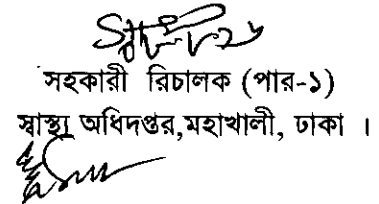 সহকারী রিচালক (পার-১)
স্বাস্থ্য অধিদপ্তর,মহাখালী, ঢাকা ।